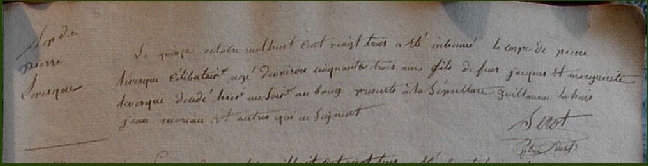 pierre
Levesque
Le quinze octobre mil huit cent vingt trois a été inhumé le corps de pierre
levesque célibataire agé d'environ cinquante trois ans fils de feus jacques et marguerite
levesque décédé hier au soir au bourg présents à la sépulture guillaume
jean et autres qui ne signent